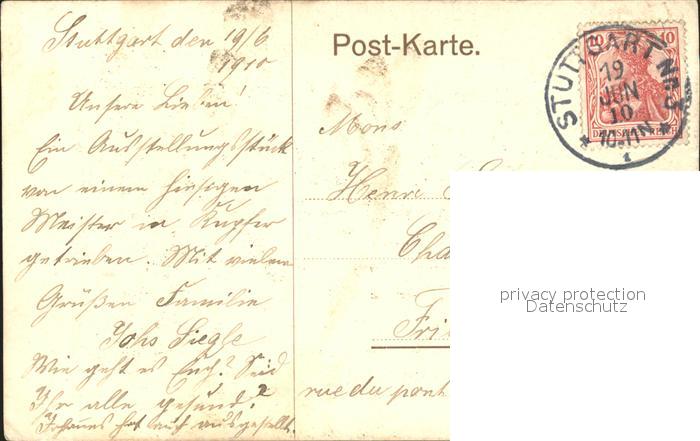 Stuttgart den 19/6
1910
Unsere Lieben!
Ein Ausstellungsstück
von einem hiesigen
Meister in Kupfer
getrieben. Mit vielen
Grüßen Familie
Johs Siegle
Wie geht es Euch? Seid
Ihr alle gesund?
Johannes hat auch ausgestellt.
Post-Karte.
10 10
DEUTSCHES REICH
STUTTGART Nr. 3
19
JUN
10
10-11N
1
Mons
Henri
Cha
Fri
rue du pont
privacy protection
Datenschutz